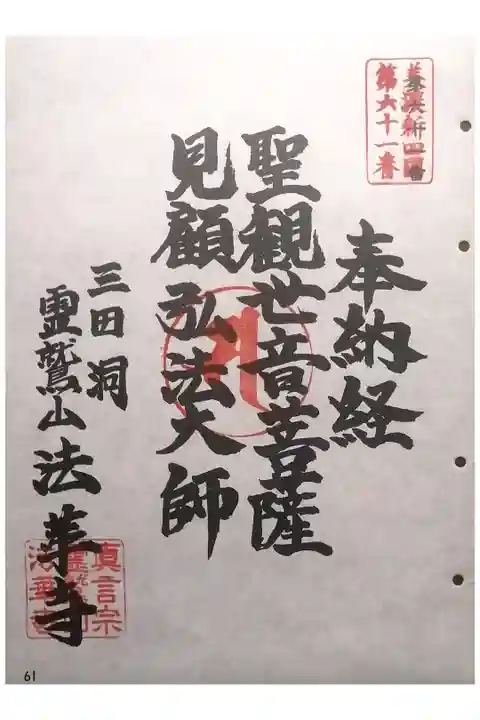 美濃新四國
第六十一番
奉納経
聖観世音菩薩
見顧弘法大師
三田洞
霊鷲山法華寺
真言宗
法華寺
61